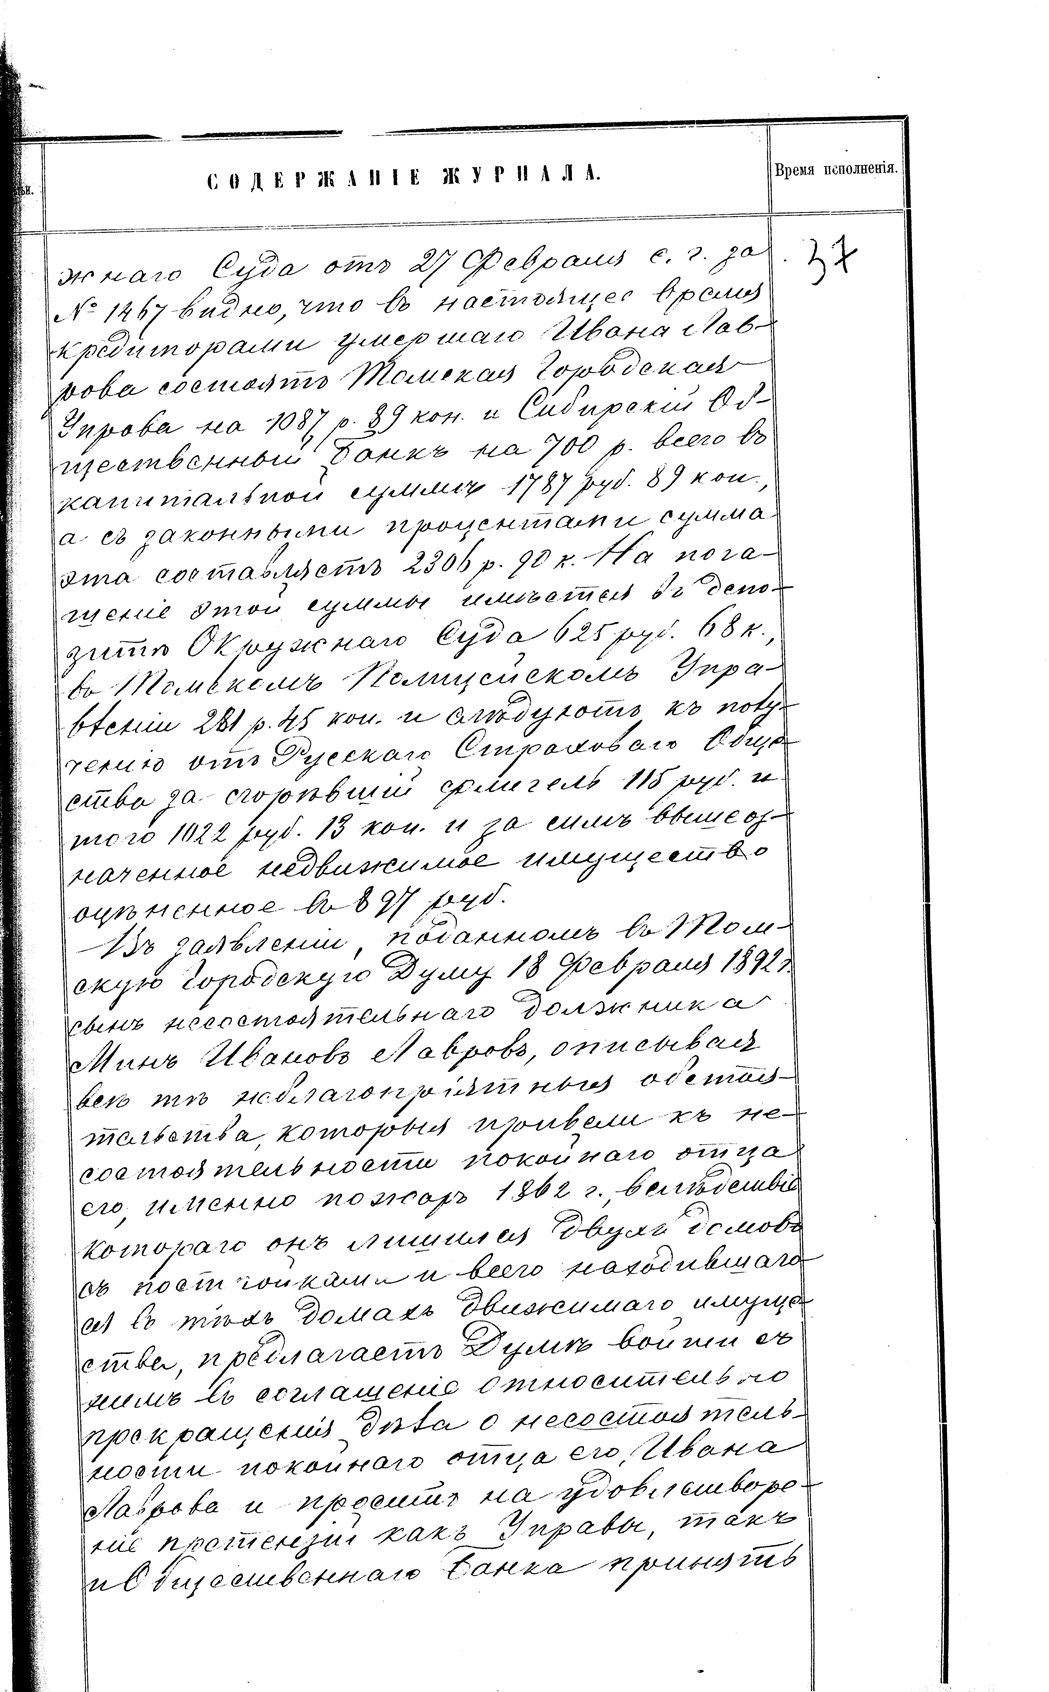 ьи.
СОДЕРЖАНІЕ ЖУРНАЛА.
Время исполненія.
37
жнаго Суда отъ 27 Февраля с. г. за
№ 1467 видно, что въ настоящее время
кредиторами умершаго Ивана Лав-
рова состоятъ Томская Городская
Управа на 1087 р. 89 коп. и Сибирскій Об-
щественный Банкъ на 700 р. всего въ
капитальной суммѣ 1787 руб. 89 коп.,
а съ законными процентами сумма
эта составляетъ 2306 р. 90 к. На пога-
шеніе этой суммы имѣется въ депо-
зитѣ Окружнаго Суда 625 руб. 68 к.,
въ Томскомъ Полицейскомъ Упра-
вленіи 281 р. 45 коп. и слѣдуютъ къ полу-
ченію отъ Русскаго Страховаго Обще-
ства за сгорѣвшій флигель 115 руб. и
того 1022 руб. 13 коп. и за симъ вышеоз-
наченное недвижимое имущество
оцѣненное въ 897 руб.
Въ заявленіи, поданномъ въ Том-
скую Городскую Думу 18 Февраля 1892 г.
сынъ несостоятельнаго должника
Минъ Ивановъ Лавровъ, описывая
всѣ тѣ неблагопріятныя обстоя-
тельства, которыя привели къ не-
состоятельности покойнаго отца
его, именно пожаръ 1862 г., вслѣдствіе
котораго онъ лишился двухъ домовъ
съ постройками и всего находившаго-
ся въ тѣхъ домахъ движимаго имуще-
ства, предлагаетъ Думѣ войти съ
нимъ въ соглашеніе относительно
прекращенія дѣла о несостоятель-
ности покойнаго отца его, Ивана
Лаврова и проситъ на удовлетворе-
ніе претензій какъ Управы, такъ
и Общественнаго Банка принять